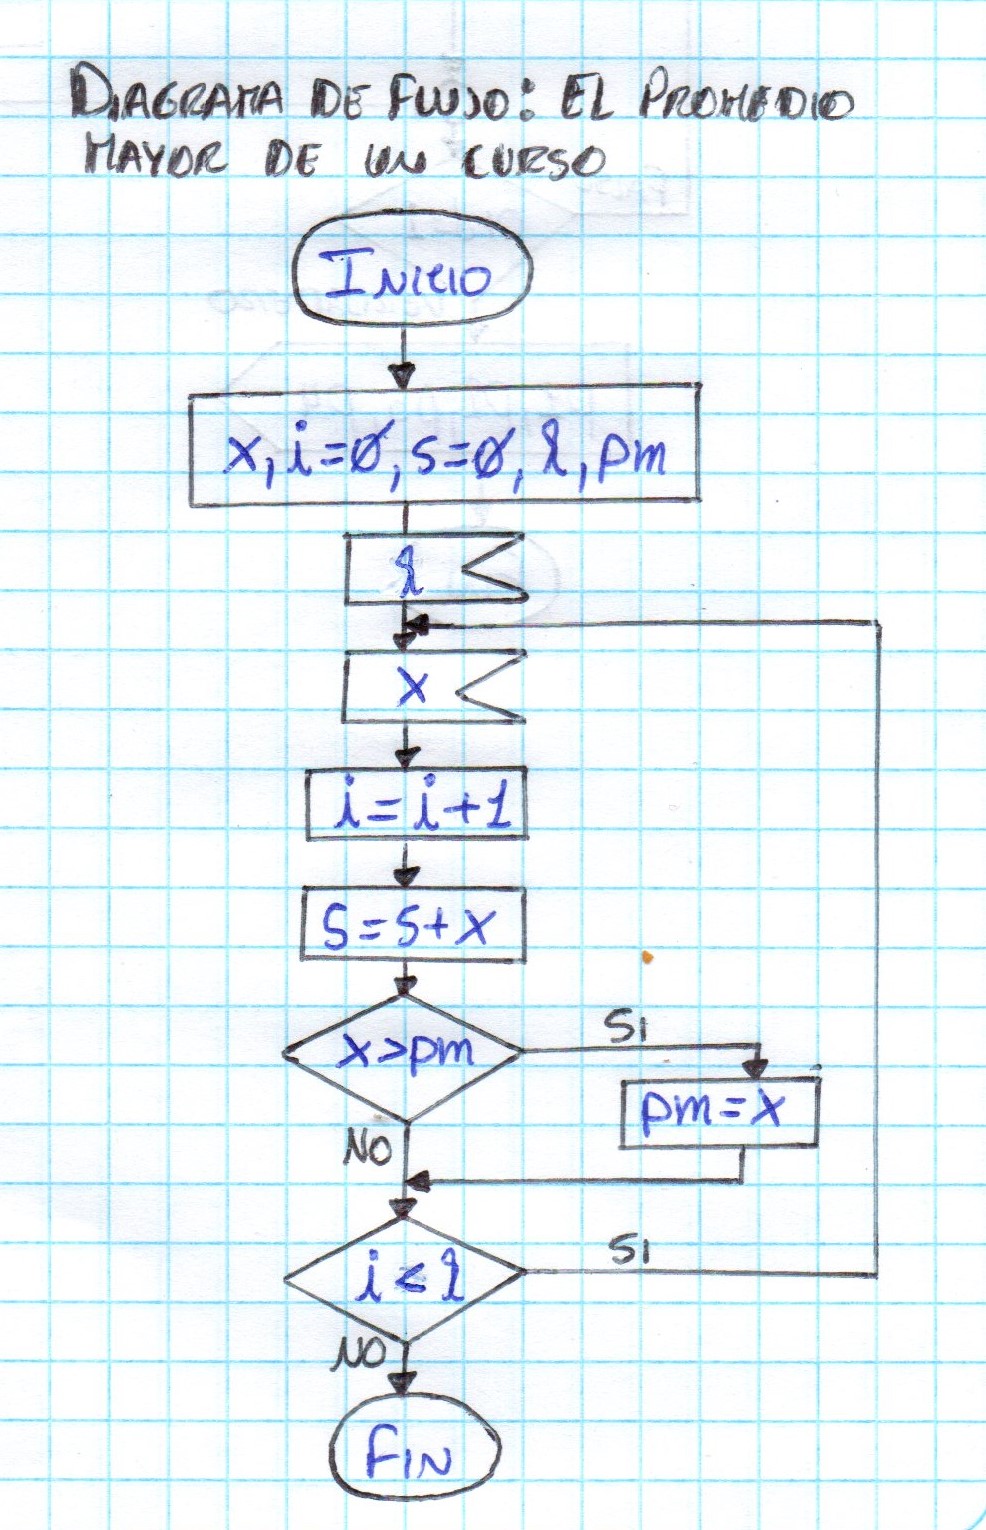 DIAGRAMA DE FLUJO: EL PROMEDIO
MAYOR DE UN CURSO
INICIO
x, i=0, s=0, l, pm
l
x
i=i+1
S=S+X
x>pm
SI
pm=x
NO
i<l
SI
NO
FIN